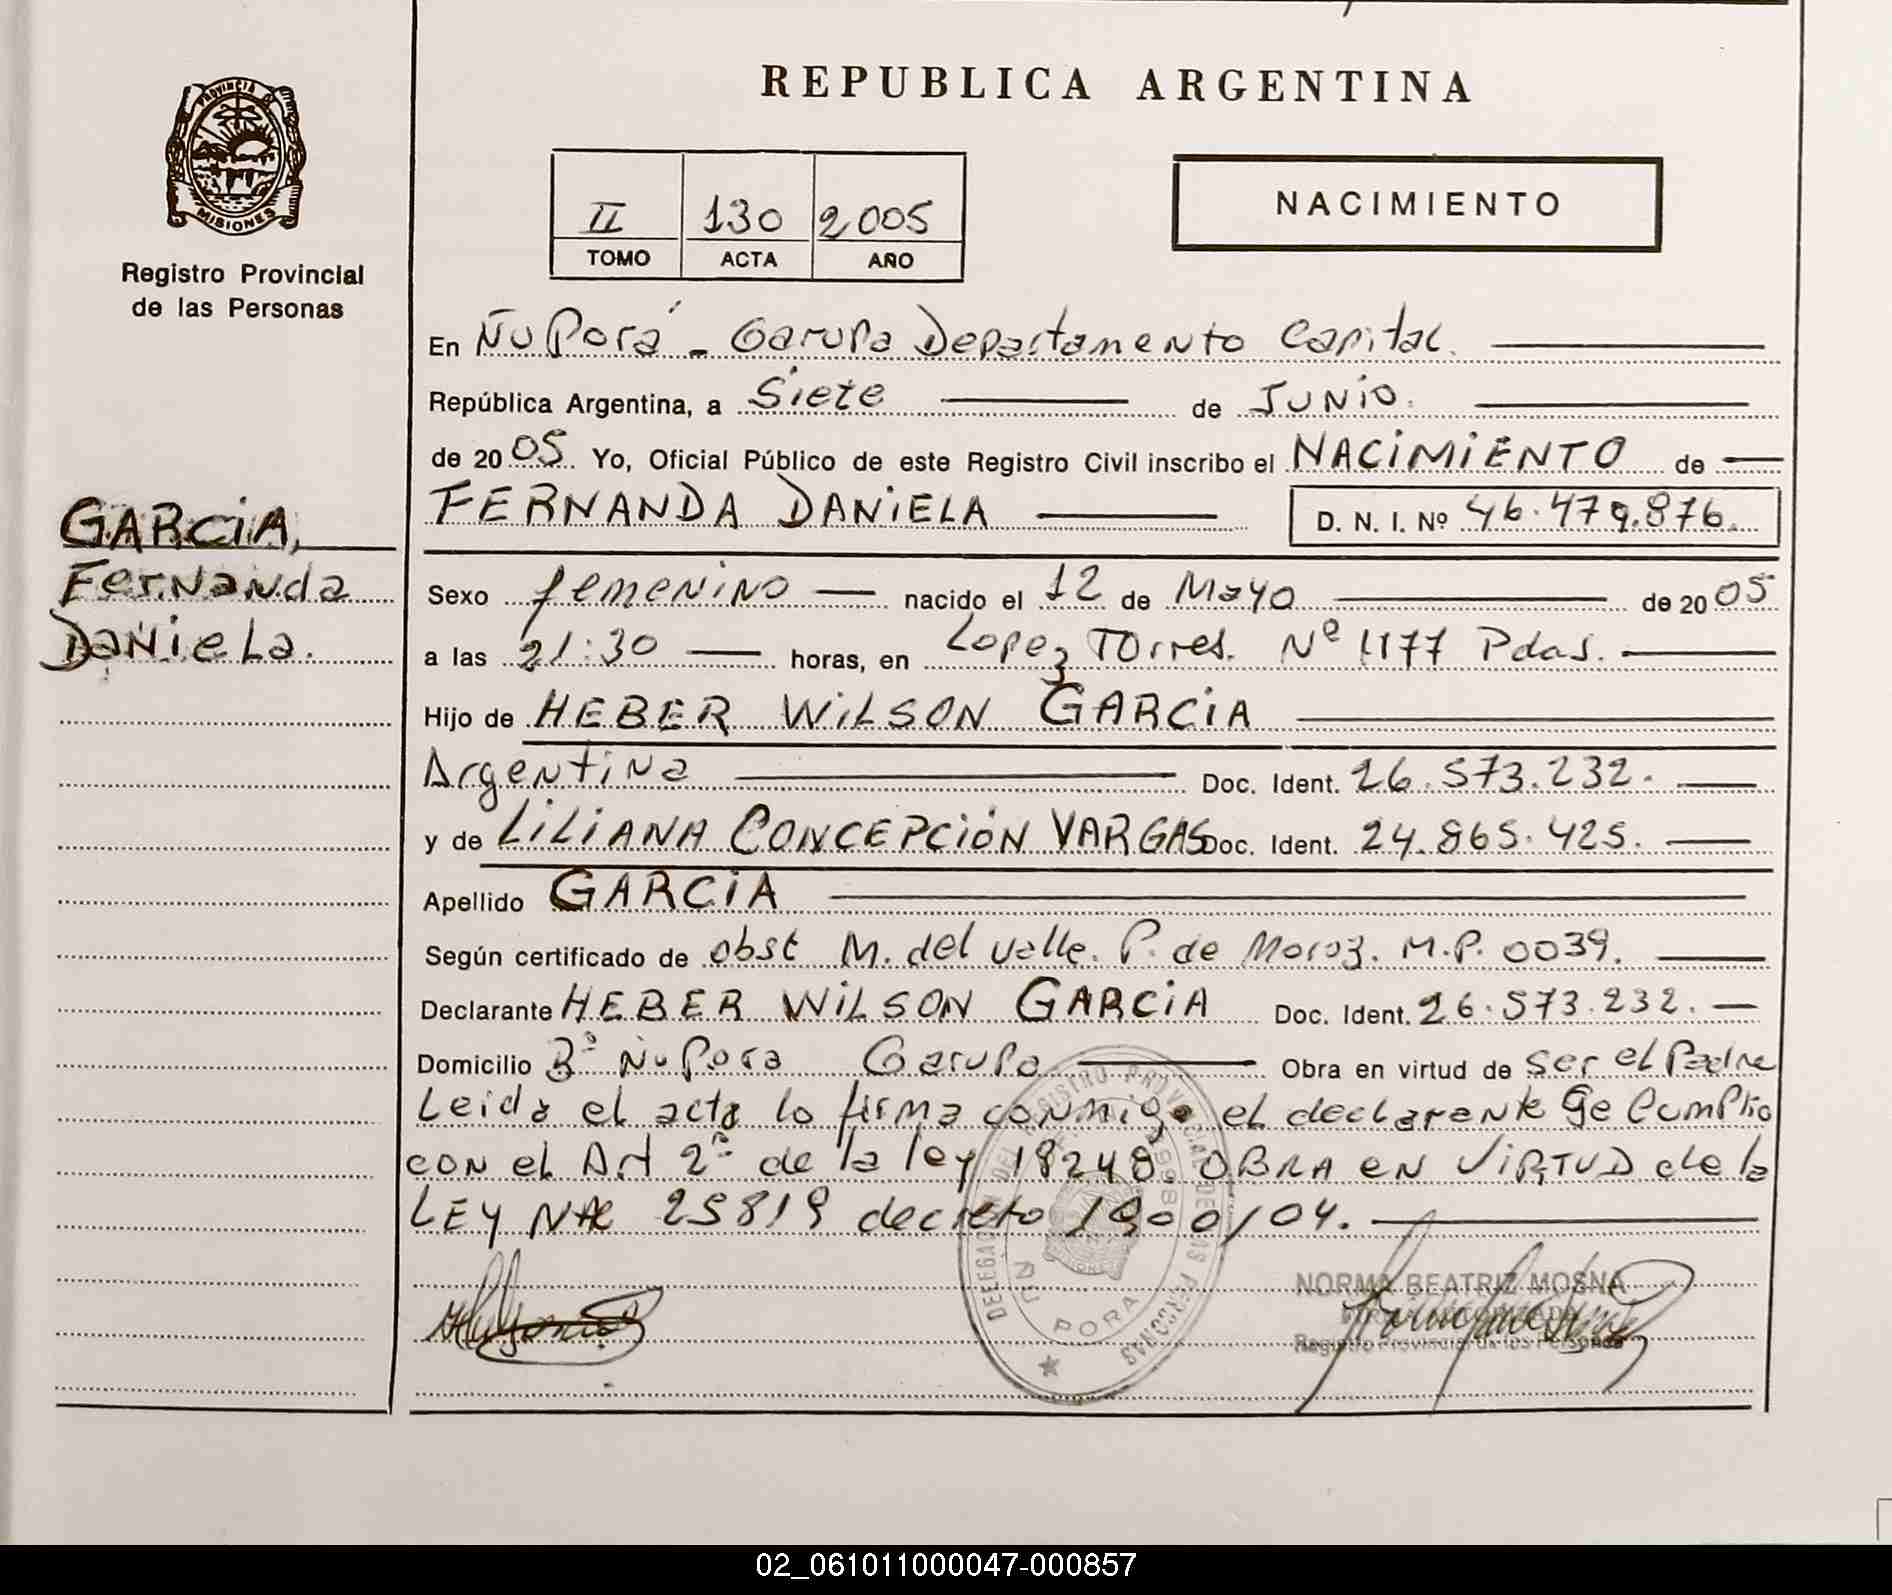 REPUBLICA ARGENTINA
PROVINCIA DE
MISIONES
Registro Provincial
de las Personas
II 130 2005
TOMO ACTA AÑO
NACIMIENTO
En Ñu Porá - Garupa Departamento Capital.
República Argentina, a Siete de JUNIO.
de 2005. Yo, Oficial Público de este Registro Civil inscribo el NACIMIENTO de
FERNANDA DANIELA D. N. I. Nº 46.479.876.
GARCIA,
Fernanda
Daniela.
Sexo femenino nacido el 12 de Mayo de 2005
a las 21:30 horas, en Lopez Torres. Nº 1177 Pdas.
Hijo de HEBER WILSON GARCIA
Argentina Doc. Ident. 26.573.232.
y de LILIANA CONCEPCIÓN VARGAS Doc. Ident. 24.865.425.
Apellido GARCIA
Según certificado de obst M. del Valle. P. de Moroz. M.P. 0039.
Declarante HEBER WILSON GARCIA Doc. Ident. 26.573.232.
Domicilio Bº Ñu Pora Garupa Obra en virtud de ser el Padre
Leida el acta lo firma conmigo el declarante Se Cumplio
con el Art 2º de la ley 18248. OBRA EN VIRTUD de la
LEY 25819 decreto 1900/04.
DELEGACION DEL REGISTRO PROVINCIAL DE LAS PERSONAS
ÑU PORA
NORMA BEATRIZ MOSNA
Registro Provincial de las Personas
02_061011000047-000857